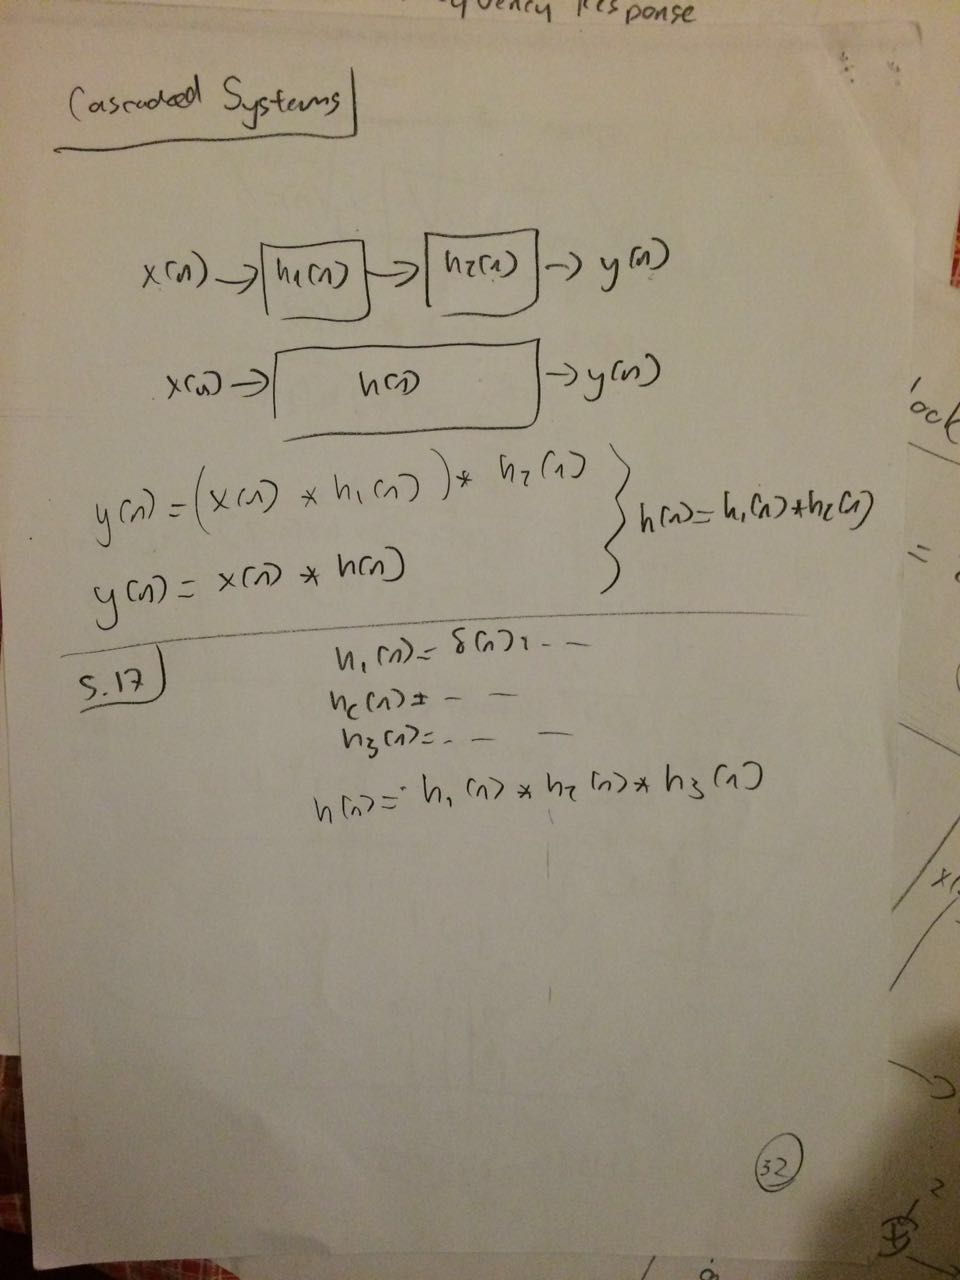 quency Response
Cascaded Systems
x(n) → h1(n) → h2(n) → y(n)
x(n) → h(n) → y(n)
y(n) = (x(n) * h1(n)) * h2(n)
y(n) = x(n) * h(n)
} h(n) = h1(n) * h2(n)
5.17
h1(n) = δ(n) - -
h2(n) = - -
h3(n) = - - -
h(n) = h1(n) * h2(n) * h3(n)
32
ock
=
x(
2